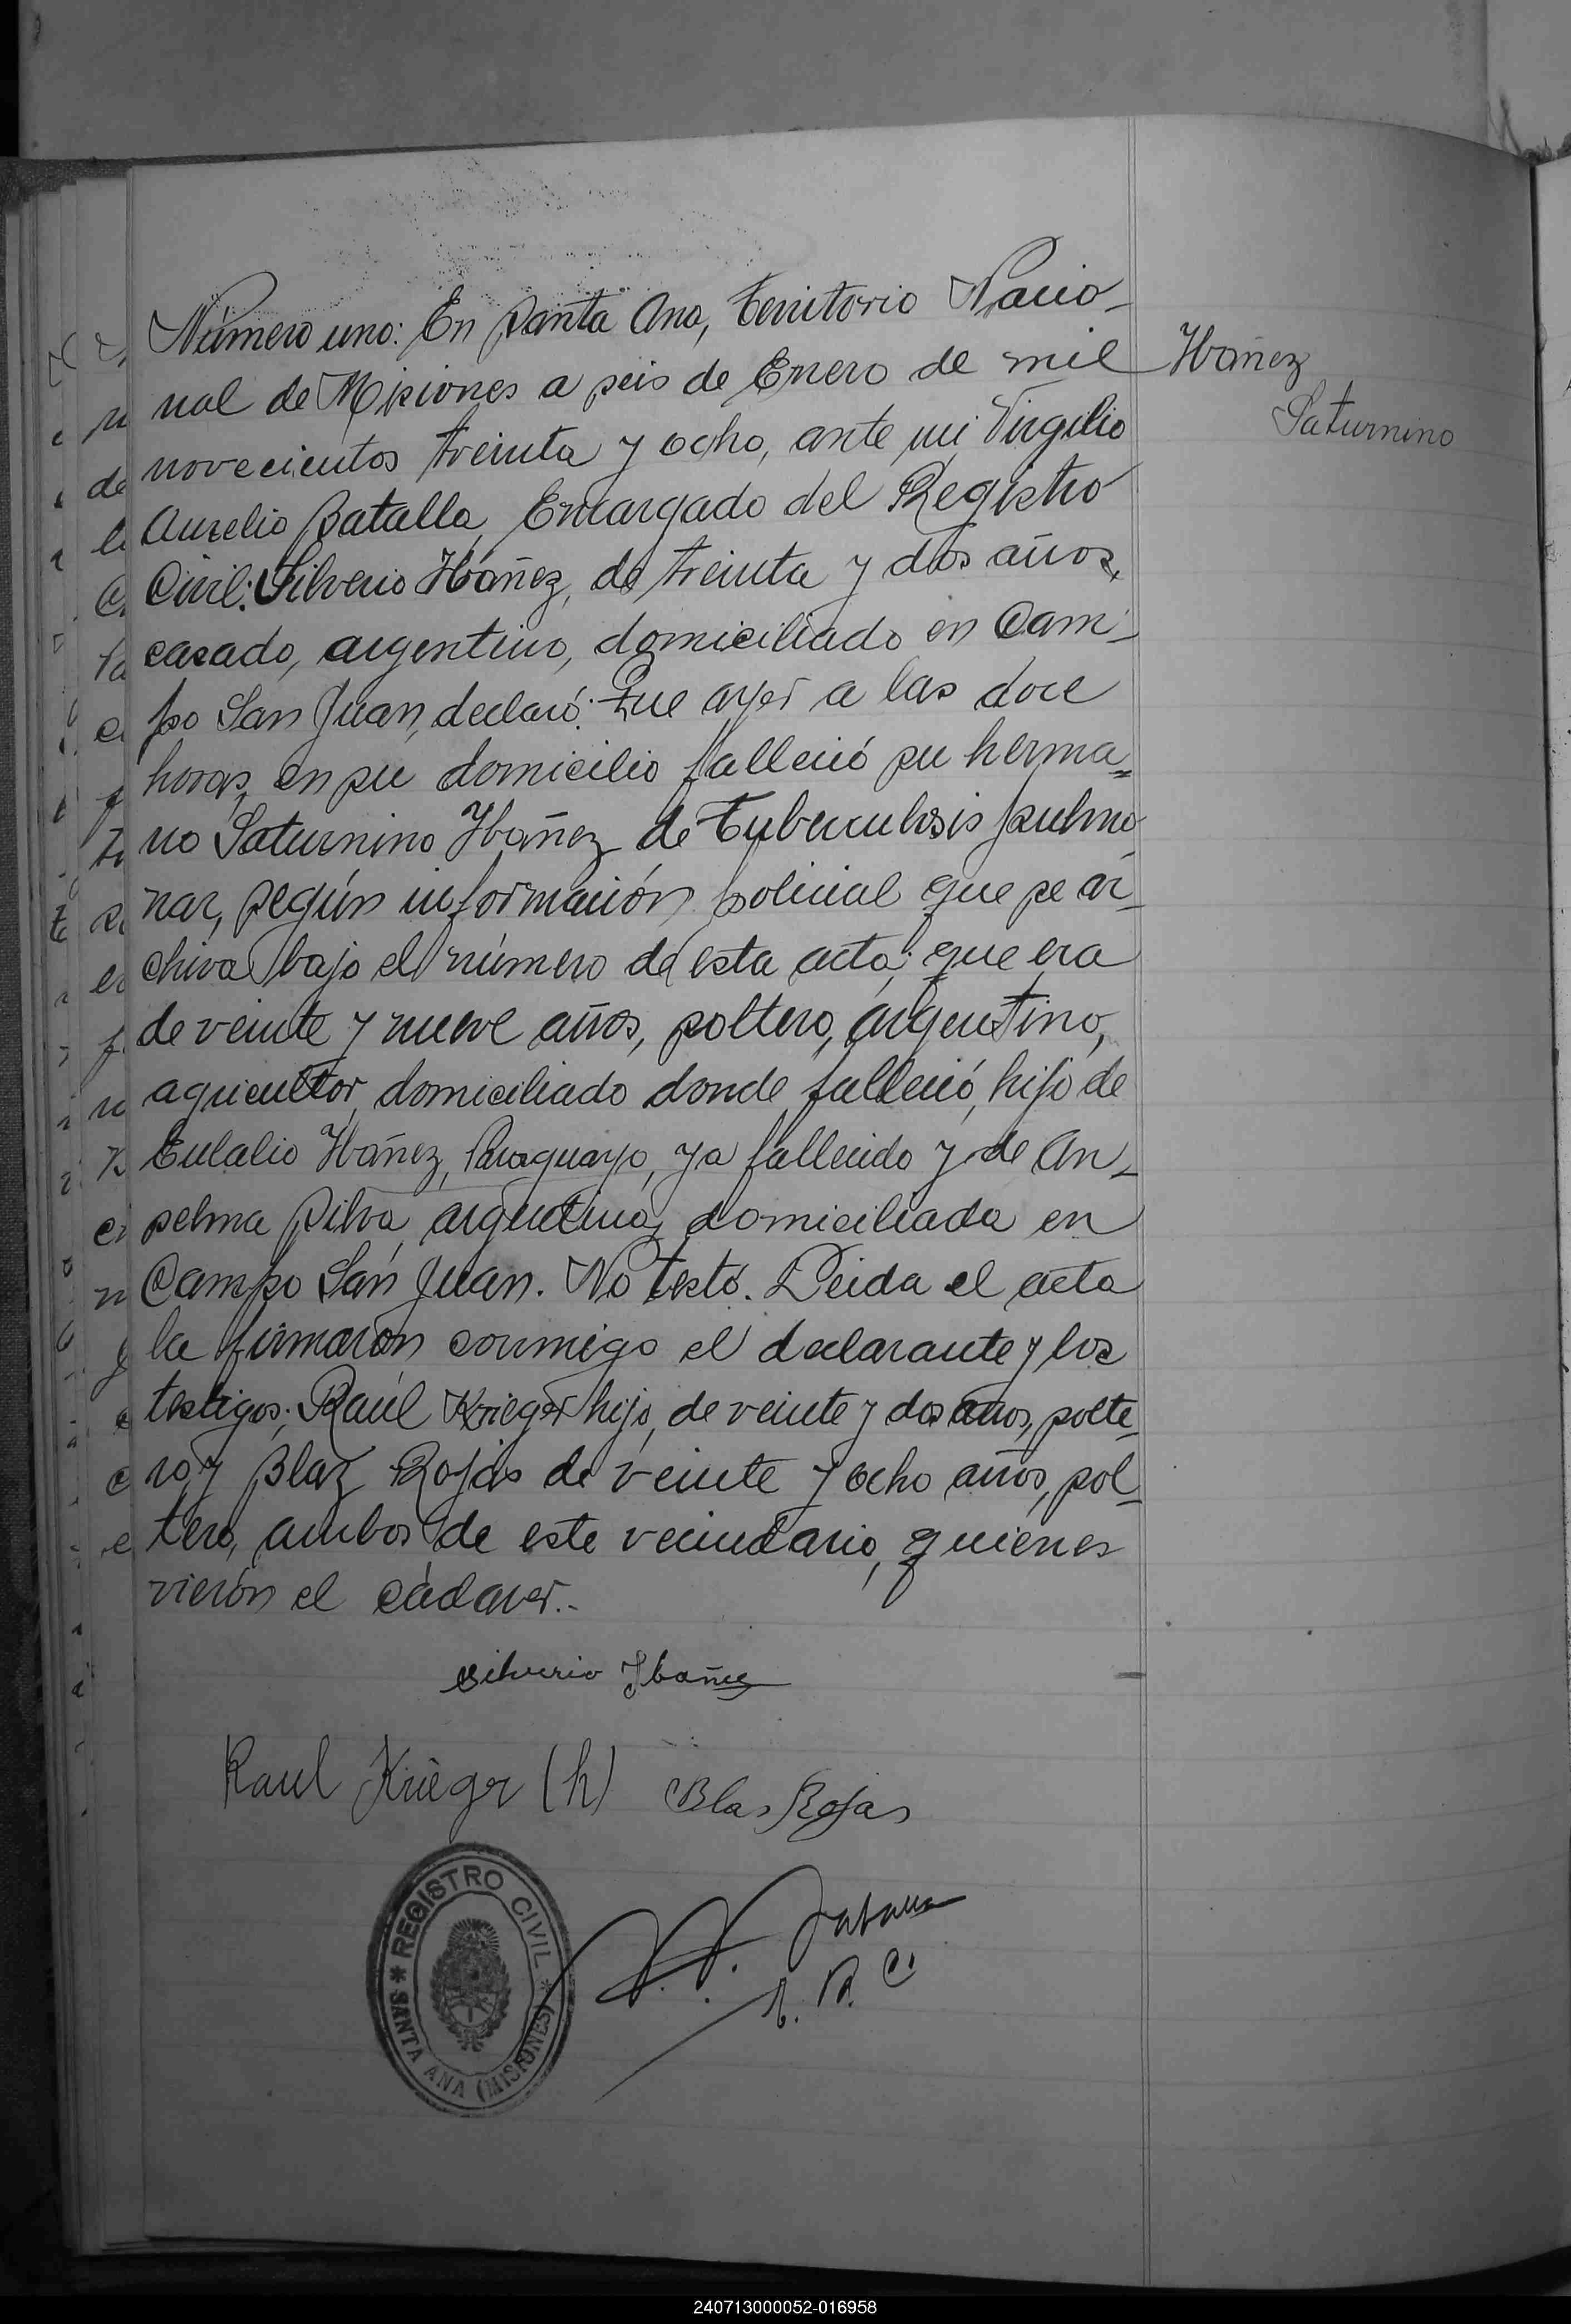 Número uno: En Santa Ana, Territorio Nacio-
nal de Misiones a seis de Enero de mil
novecientos treinta y ocho, ante mi, Virgilio
Aurelio Batalla, Encargado del Registro
Civil: Silverio Ibáñez, de treinta y dos años,
casado, argentino, domiciliado en Cam-
po San Juan, declaró: Que ayer a las doce
horas, en su domicilio falleció su herma=
no Saturnino Ibañez de Tuberculosis pulmo-
nar, según información policial que se ar-
chiva bajo el número de esta acta; que era
de veinte y nueve años, soltero, argentino,
agricultor, domiciliado donde falleció, hijo de
Eulalio Ibáñez, Paraguayo, ya fallecido y de An-
selma Silva, argentina, domiciliada en
Campo San Juan. No testó. Leida el acta
la firmaron conmigo el declarante y los
testigos; Raúl Krieger hijo, de veinte y dos años, solte-
ro, y Blaz Rojas de veinte y ocho años, sol-
tero, ambos de este vecindario, quienes
vierón el cádaver.-
Ibañez
Saturnino
Silverio Ibañez
Raul Krieger (h) Blas Rojas
REGISTRO CIVIL
SANTA ANA (MISIONES)
Batalla
E. R. C.
240713000052-016958